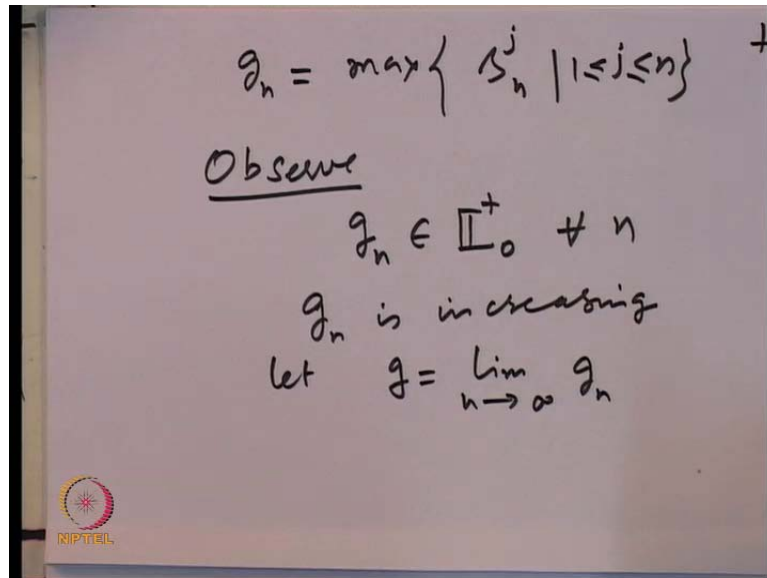 gₙ = max{ sₙʲ | 1≤j≤n}
Observe
gₙ ∈ 𝕃⁺₀ ∀ n
gₙ is increasing
let g = lim gₙ
n→∞
NPTEL